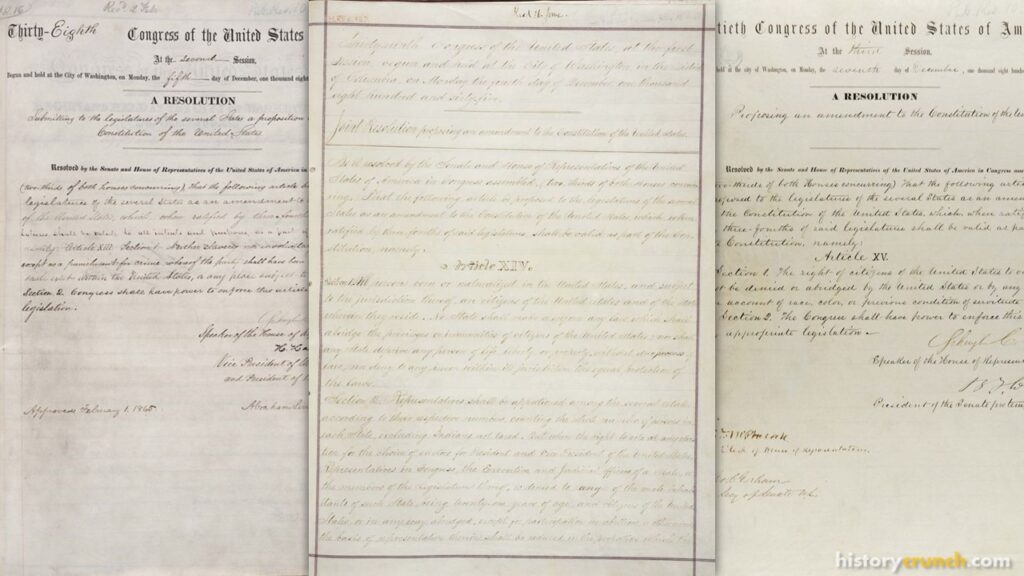 Thirty-Eighth
Congress of the United States
At the second Session,
Begun and held at the City of Washington, on Monday, the fifth day of December, one thousand eight
A RESOLUTION
Submitting to the legislatures of the several States a proposition
Constitution of the United States
Resolved by the Senate and House of Representatives of the United States of America in
(two-thirds of both houses concurring), that the following article b
legislatures of the several States as an amendment to
of the United States, which, when ratified by three-fourths
Article XIII. Section 1. Neither slavery nor involunta
except as a punishment for crime whereof the party shall have been
exist within the United States, or any place subject to
Section 2. Congress shall have power to enforce this article
legislation.
Speaker of the House of
Vice President of
and President of
Approved February 1. 1865
Abraham Lin
Thirty-ninth Congress of the United States, at the first
Session, begun and held at the City of Washington, in the District
of Columbia, on Monday the fourth day of December, one thousand
eight hundred and sixty-five.
Joint Resolution proposing an amendment to the Constitution of the United States.
Be it resolved by the Senate and House of Representatives of the United
States of America in Congress assembled, two thirds of both Houses concur-
ring, That the following article be proposed to the legislatures of the several
States as an amendment to the Constitution of the United States, which, when
ratified by three fourths of said legislatures, shall be valid as part of the Con-
stitution, namely:
Article XIV.
Section 1. All persons born or naturalized in the United States, and subject
to the jurisdiction thereof, are citizens of the United States and of the State
wherein they reside. No State shall make or enforce any law which shall
abridge the privileges or immunities of citizens of the United States; nor shall
any State deprive any person of life, liberty, or property, without due process of
law, nor deny to any person within its jurisdiction the equal protection of
the laws.
Section 2. Representatives shall be apportioned among the several States
according to their respective numbers, counting the whole number of persons in
each State, excluding Indians not taxed. But when the right to vote at any elec-
tion for the choice of electors for President and Vice President of the United States,
Representatives in Congress, the Executive and Judicial officers of a State, or
the members of the Legislature thereof, is denied to any of the male inhabi-
tants of such State, being twenty-one years of age, and citizens of the United
States, or in any way abridged, except for participation in rebellion, or other crime,
the basis of representation therein shall be reduced in the proportion which the
tieth Congress of the United States of Am
At the third Session,
held at the city of Washington, on Monday, the seventh day of December, one thousand eight hundred
A RESOLUTION
Proposing an amendment to the Constitution of the
Resolved by the Senate and House of Representatives of the United States of America in Congress asse
two-thirds of both Houses concurring) That the following artic
legislatures of the several States as an amen
the Constitution of the United States, which, when ratif
three-fourths of said legislatures shall be valid as pa
Constitution, namely:
Article XV.
Section 1. The right of citizens of the United States to vo
be denied or abridged by the United States or by any
account of race, color, or previous condition of servitude
Section 2. The Congress shall have power to enforce this
appropriate legislation.
Speaker of the House of Represen
President of the Senate protem
Clerk of House of Representatives.
Secy of Senate U.S.
historycrunch.com